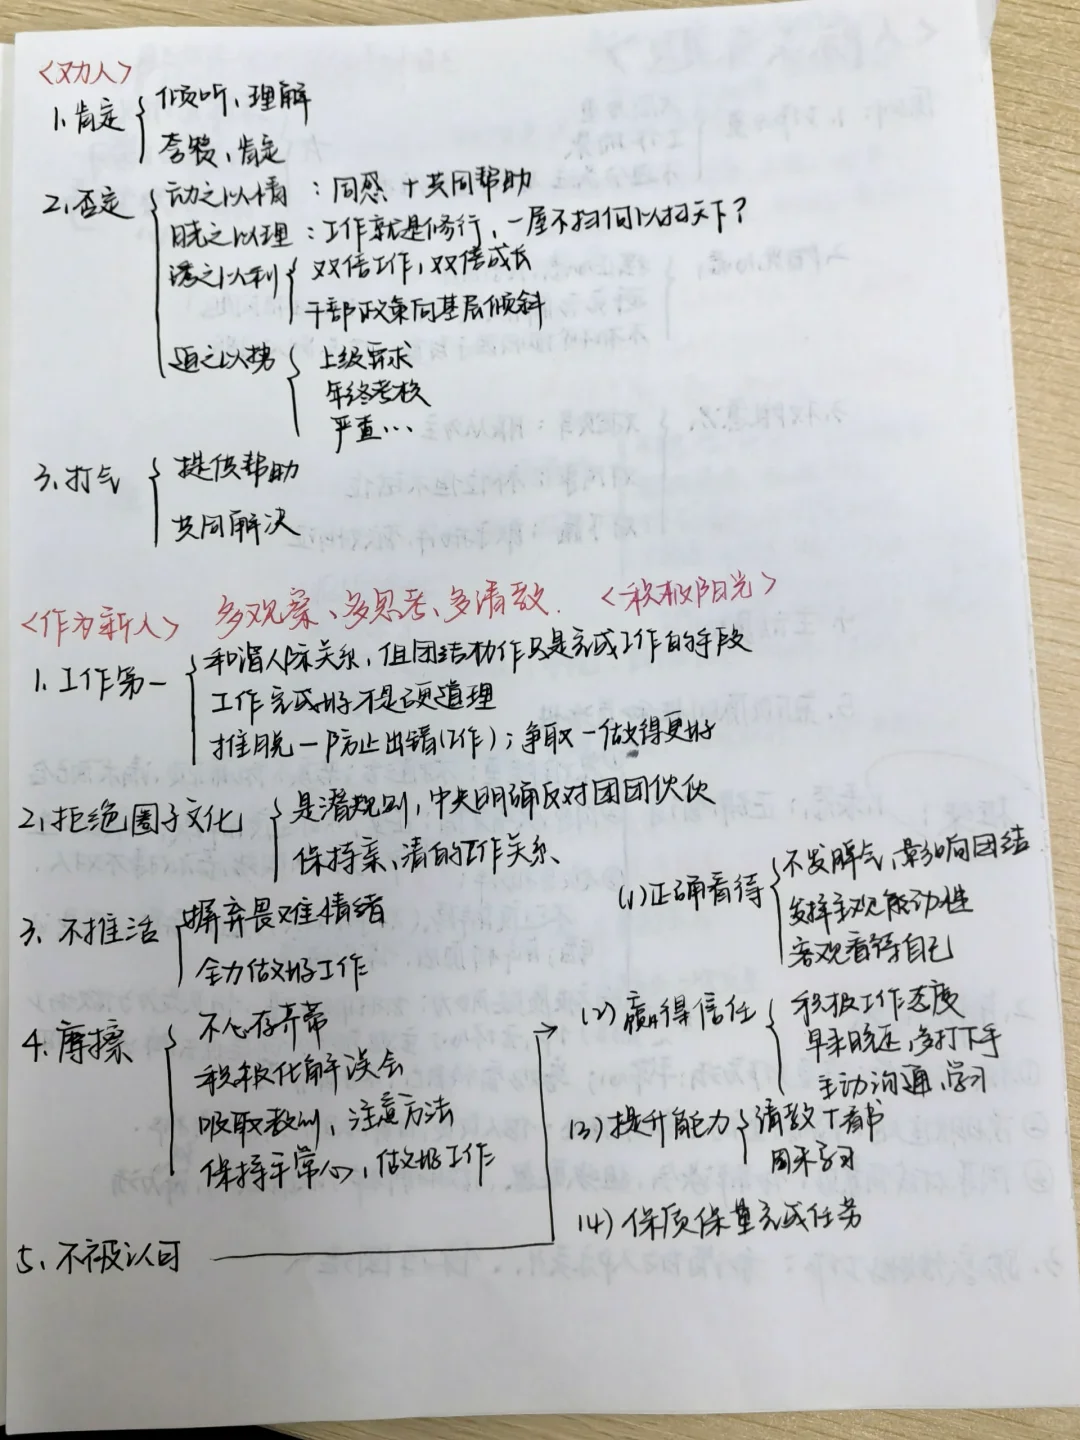 <劝人>
1、肯定 { 倾听、理解
夸赞、肯定
2、否定 { 动之以情：同感+共同帮助
晓之以理：工作就是修行，一屋不扫何以扫天下？
诱之以利 { 双倍工作，双倍成长
干部政策向基层倾斜
逼之以势 { 上级要求
年终考核
严查…
3、打气 { 提供帮助
共同解决
<作为新人> 多观察、多思考、多请教. <积极阳光>
1、工作第一 { 和谐人际关系，但团结协作只是完成工作的手段
工作完成好不是硬道理
推脱—防止出错(工作)；争取—做得更好
2、拒绝圈子文化 { 是潜规则，中央明确反对团团伙伙
保持亲、清的工作关系
3、不推活 { 摒弃畏难情绪
全力做好工作
4、摩擦 { 不心存芥蒂
积极化解误会
吸取教训，注意方法
保持平常心，做好工作
5、不被认可 →
(1)正确看待 { 不发脾气，影响团结
发挥主观能动性
客观看待自己
(2)赢得信任 { 积极工作态度
早来晚走，多打下手
主动沟通，学习
(3)提升能力 { 请教+看书
周末学习
(4)保质保量完成任务